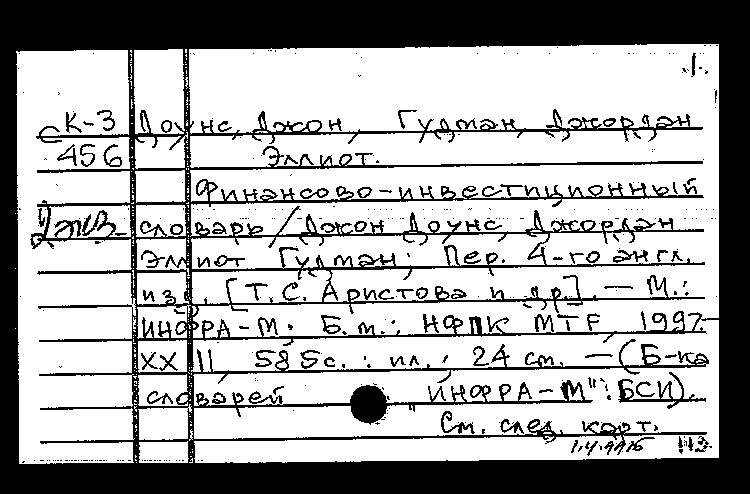 1.
сК-3 Доунс, Джон, Гудман, Джордан
456 Эллиот.
Финансово-инвестиционный
2экз. словарь / Джон Доунс, Джордан
Эллиот Гудман; Пер. 4-го англ.
изд. [Т.С. Аристова и др]. — М.:
ИНФРА-М; Б.м.: НФПК MTF, 1997.—
XXII, 585с.: ил.; 24 см. — (Б-ка
словарей "ИНФРА-М": БСИ).
См. след. карт.
нз.